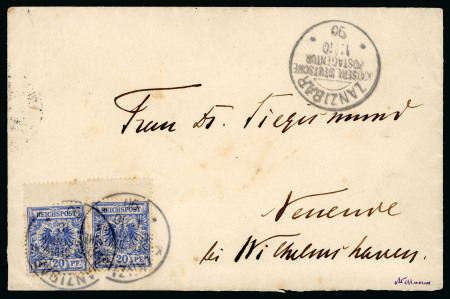 ZANZIBAR
KAISERL. DEUTSCHE
POSTAGENTUR
90
Frau Dr. Siegismund
Neuende
bei Wilhelmshaven.
REICHSPOST REICHSPOST
20 PF 20 PF
ZANZIBAR